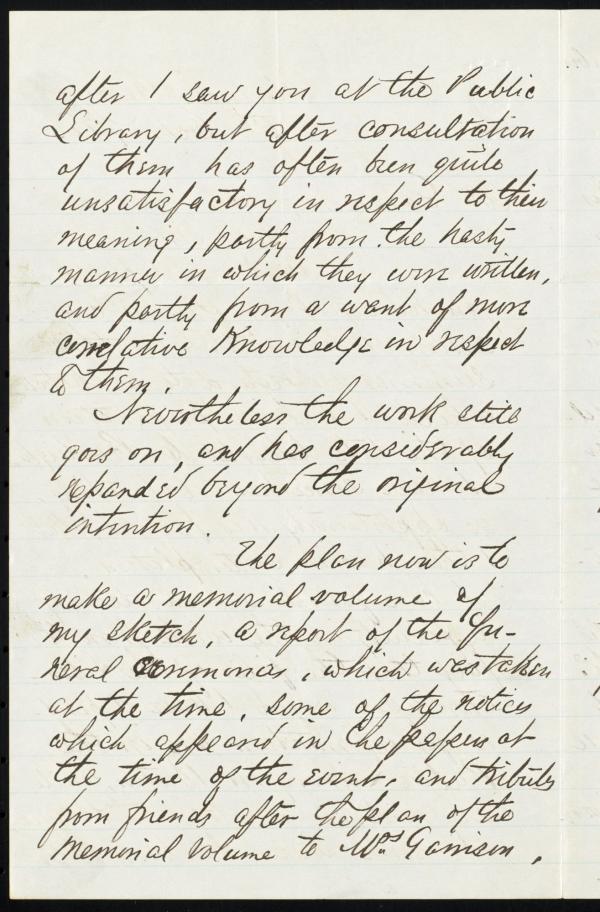 after I saw you at the Public
Library, but after consultation
of them has often been quite
unsatisfactory in respect to their
meaning, partly from the hasty
manner in which they were written,
and partly from a want of more
correlative Knowledge in respect
to them.
Nevertheless the work still
goes on, and has considerably
expanded beyond the original
intention.
The plan now is to
make a memorial volume of
my sketch, a report of the fu-
neral ceremonies, which was taken
at the time, some of the notices
which appeared in the papers at
the time of the event, and tributes
from friends after the plan of the
Memorial Volume to Mrs Garrison.